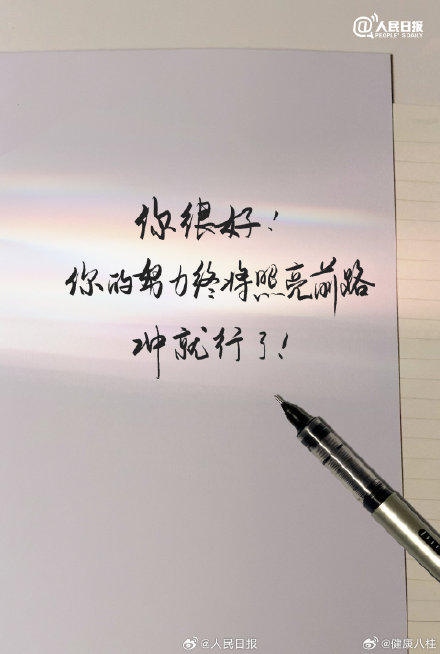 @人民日报
PEOPLE'S DAILY
你很好！
你的努力终将照亮前路
冲就行了！
@人民日报
@健康八柱